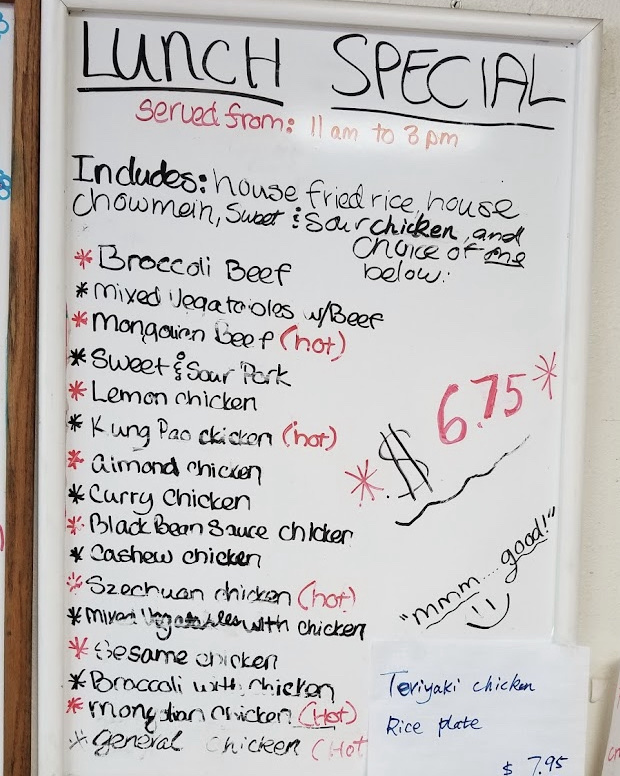 LUNCH SPECIAL
Served from: 11am to 3pm
Includes: house fried rice, house
chowmein, Sweet & Sour chicken, and
choice of one
below:
* Broccoli Beef
* mixed Vegatables w/Beef
* Mongolian Beef (hot)
* Sweet & Sour Pork
* Lemon chicken
* Kung Pao chicken (hot)
* almond chicken
* Curry Chicken
* Black Bean Sauce chicken
* Cashew chicken
* Szechuan chicken (hot)
* mixed Vegatables with chicken
* Sesame chicken
* Broccoli with chicken
* mongolian chicken (Hot)
* general chicken (Hot
* $ 6.75 *
"mmm... good!"
Teriyaki chicken
Rice plate
$ 7.95